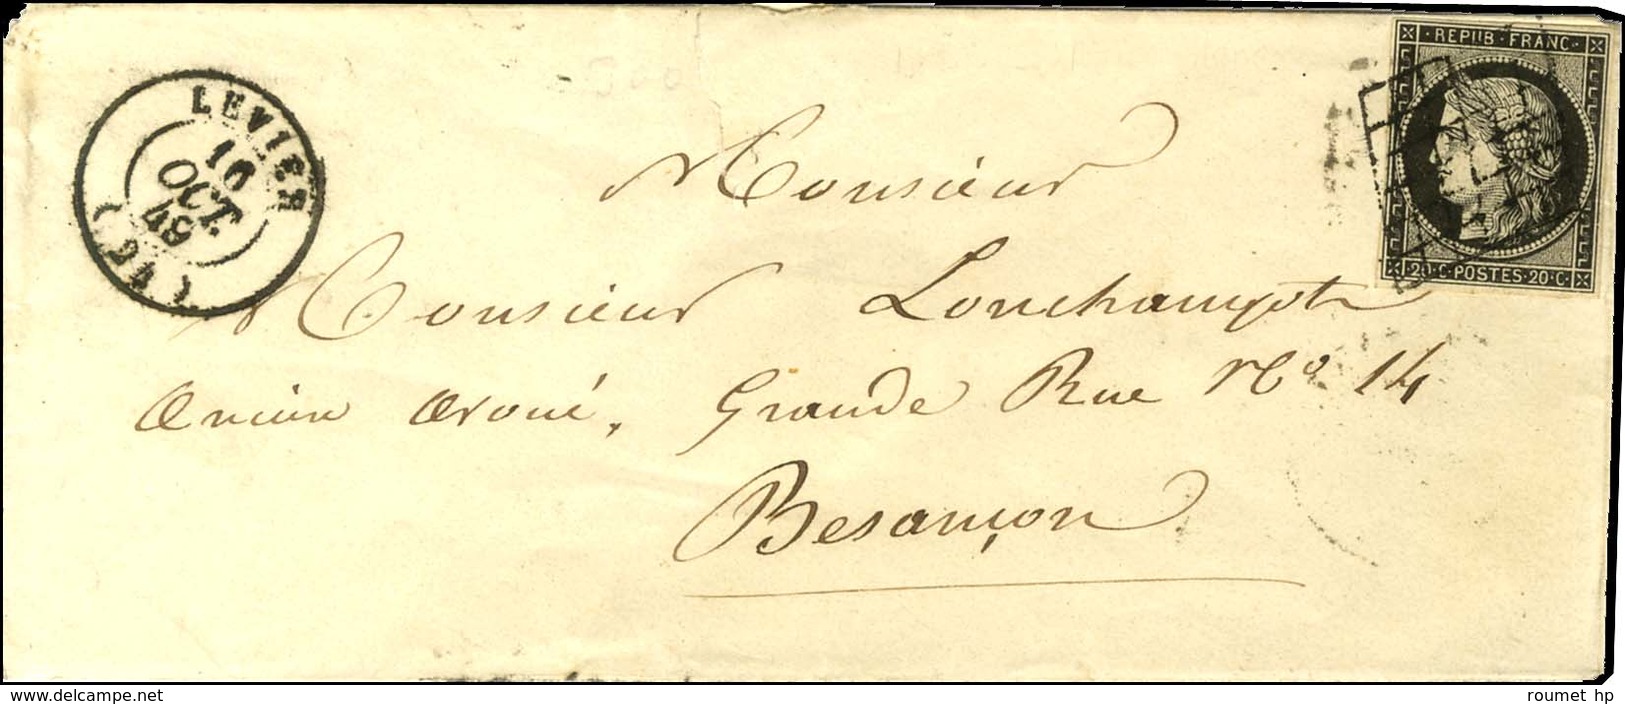 REPUB·FRANC·
LEVIER
16
OCT.
49
(24)
20·C·POSTES·20·C·
Monsieur
Monsieur Lonchampt
Ancien Avoué, Grande Rue No 14
Besançon
roumet hp